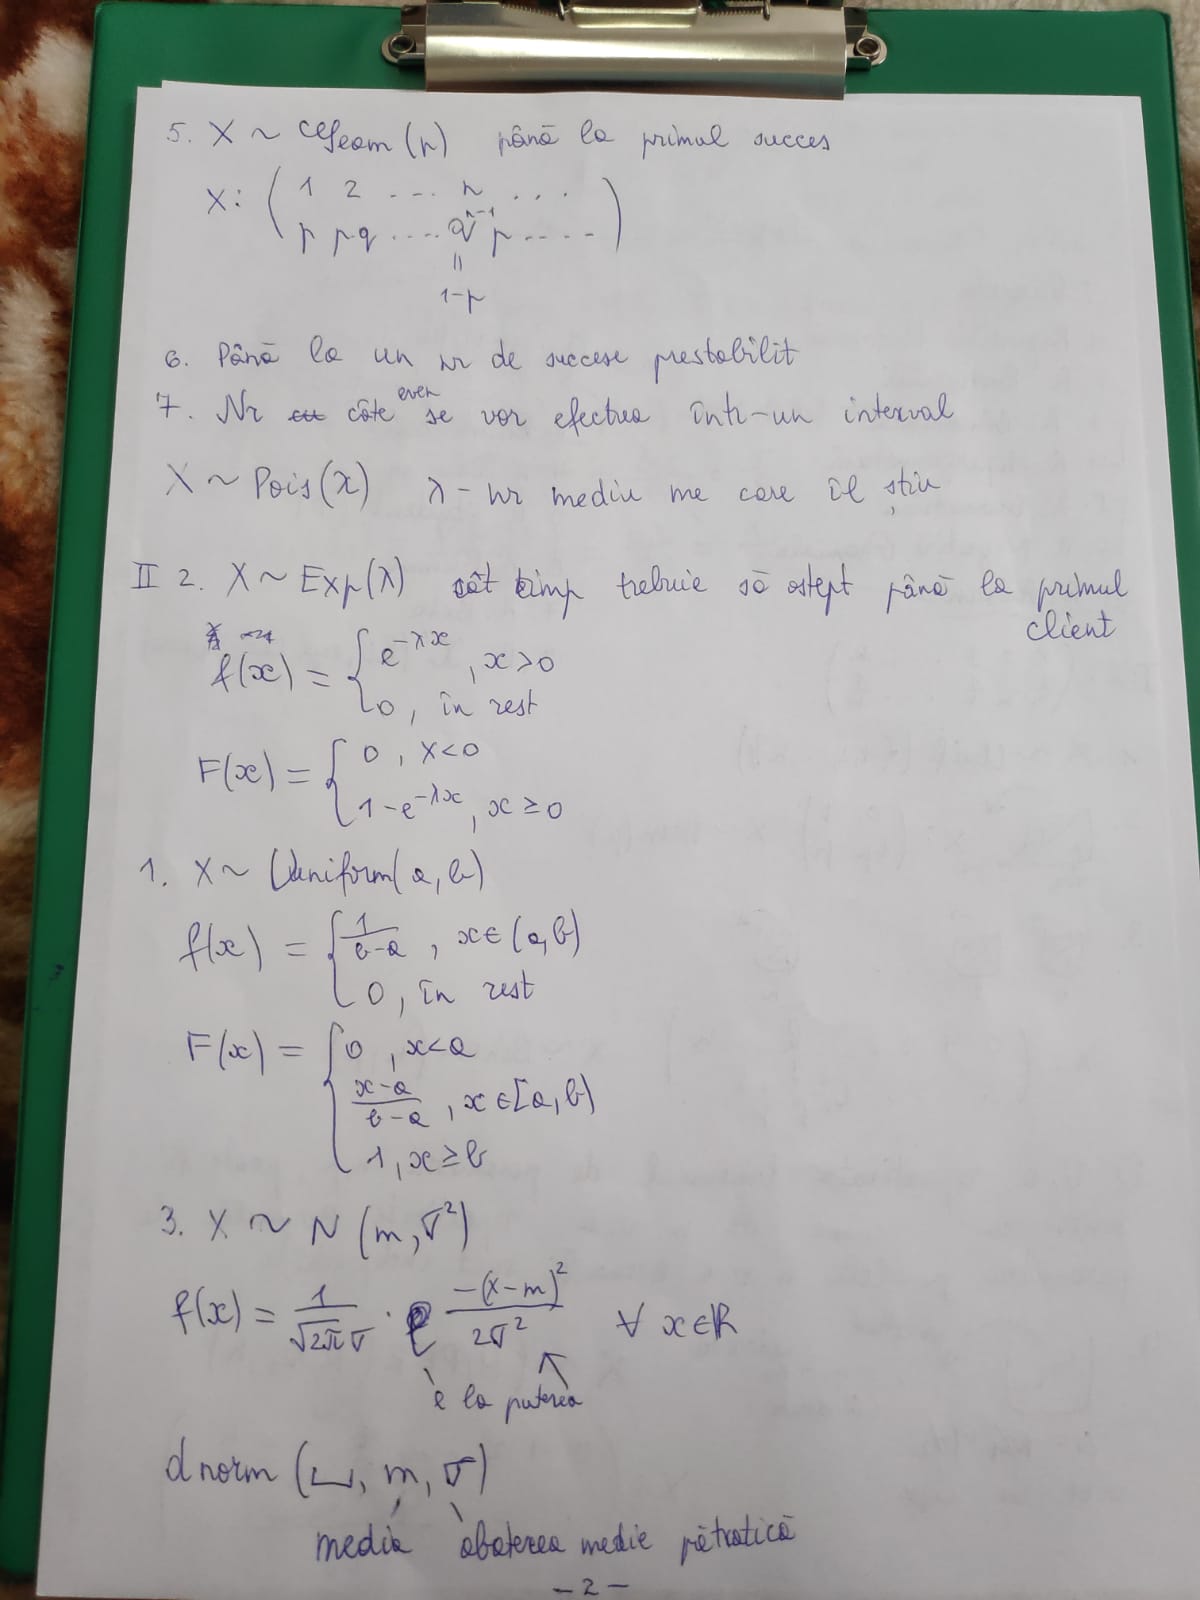 5. X ~ Geom (p) până la primul succes
X: ( 1 2 .... n ....
p p·q ..... q^{n-1} p ..... )
||
1-p
6. Până la un nr de succese prestabilit
7. Nr câte even se vor efectua într-un interval
X ~ Pois(λ) λ - nr mediu pe care îl știu
II 2. X ~ Exp(λ) cât timp trebuie să aștept până la primul
client
f(x) = { e^{-λx} , x>0
0, în rest
F(x) = { 0 , x<0
1-e^{-λx} , x ≥ 0
1. X ~ Uniform(a, b)
f(x) = { 1/(b-a) , x∈(a,b)
0, în rest
F(x) = { 0 , x<a
(x-a)/(b-a) , x∈[a,b)
1, x≥b
3. X ~ N (m, σ²)
f(x) = 1/(√2π σ) · e -(x-m)²/(2σ²) ∀ x∈ℝ
e la puterea
dnorm (⊔, m, σ)
media abaterea medie pătratică
- 2 -